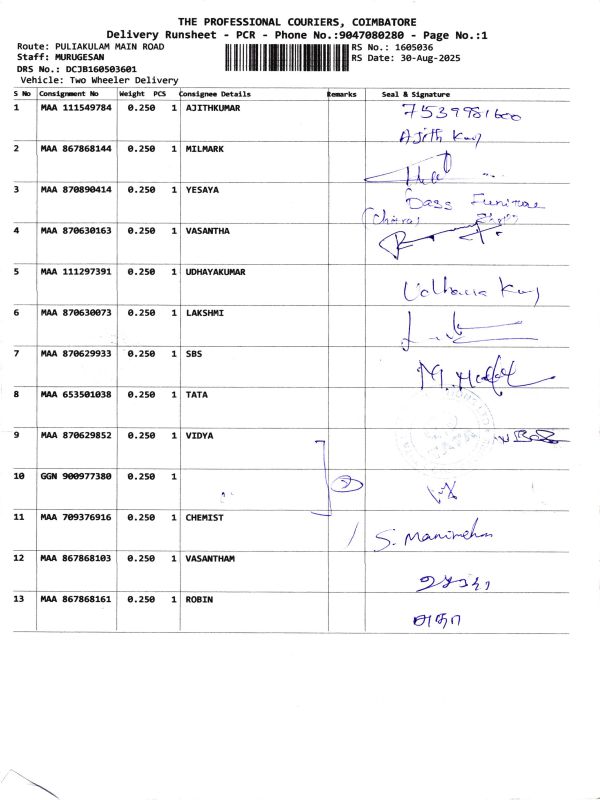 THE PROFESSIONAL COURIERS, COIMBATORE
Delivery Runsheet - PCR - Phone No.:9047080280 - Page No.:1
Route: PULIAKULAM MAIN ROAD RS No.: 1605036
Staff: MURUGESAN RS Date: 30-Aug-2025
DRS No.: DCJB160503601
Vehicle: Two Wheeler Delivery
S No Consignment No Weight PCS Consignee Details Remarks Seal & Signature
1 MAA 111549784 0.250 1 AJITHKUMAR 7539981600
Ajith Kuy
2 MAA 867868144 0.250 1 MILMARK
3 MAA 870890414 0.250 1 YESAYA Dass Furniture
4 MAA 870630163 0.250 1 VASANTHA
5 MAA 111297391 0.250 1 UDHAYAKUMAR
6 MAA 870630073 0.250 1 LAKSHMI
7 MAA 870629933 0.250 1 SBS
8 MAA 653501038 0.250 1 TATA
9 MAA 870629852 0.250 1 VIDYA
10 GGN 900977380 0.250 1
11 MAA 709376916 0.250 1 CHEMIST
12 MAA 867868103 0.250 1 VASANTHAM
13 MAA 867868161 0.250 1 ROBIN